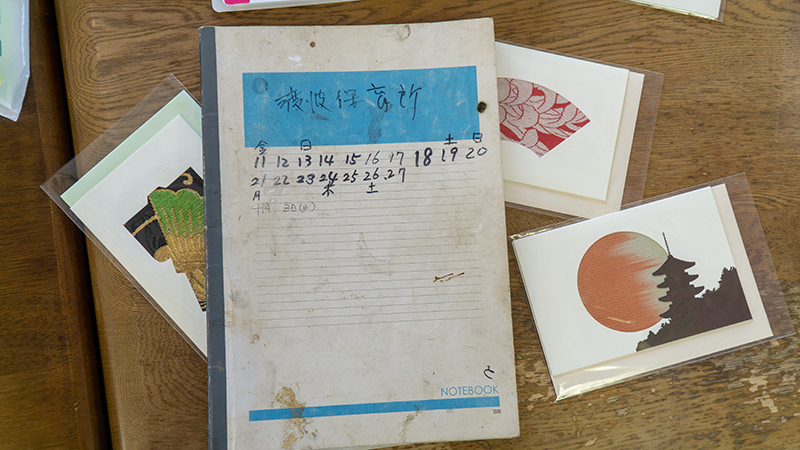 渡波保育所
金 日 土 日
11 12 13 14 15 16 17 18 19 20
21 22 23 24 25 26.27
月 木 土
と
NOTEBOOK